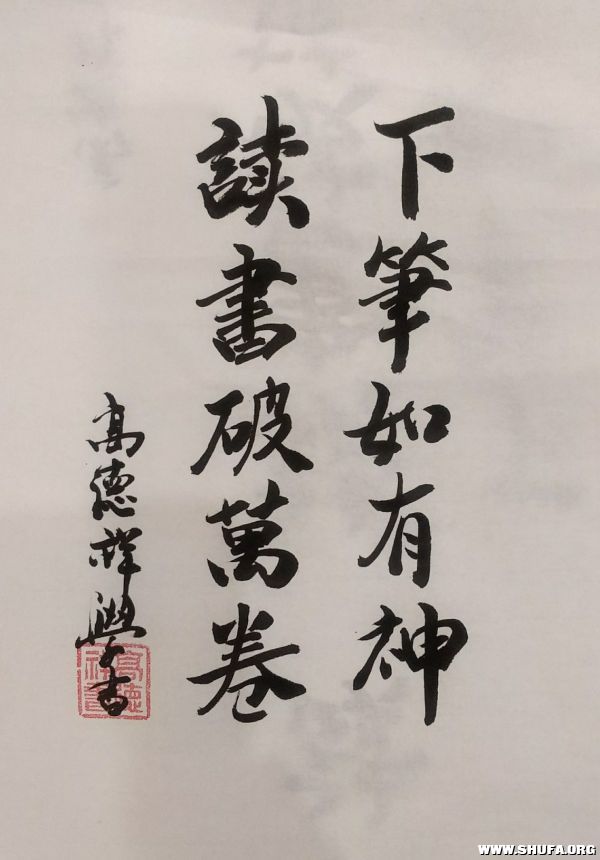 下筆如有神
讀書破萬卷
高德祥書
高德
祥書
WWW.SHUFA.ORG